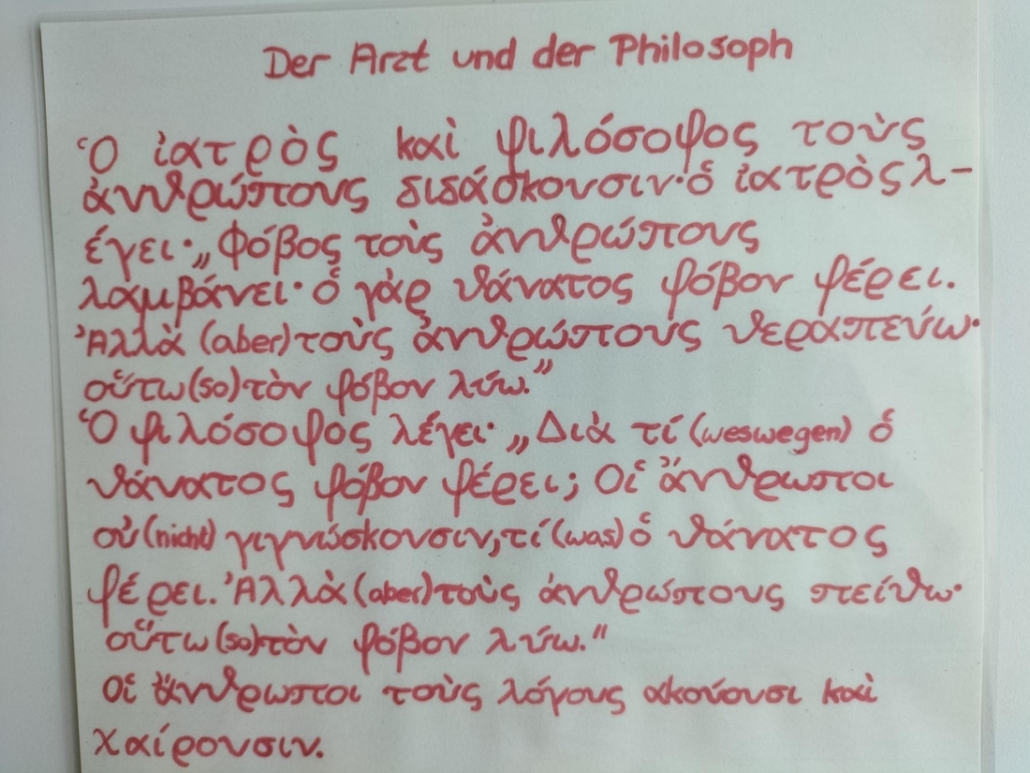 Der Arzt und der Philosoph
Ὁ ἰατρὸς καὶ φιλόσοφος τοὺς
ἀνθρώπους διδάσκουσιν· ὁ ἰατρὸς λ-
έγει· „Φόβος τοὺς ἀνθρώπους
λαμβάνει· ὁ γὰρ θάνατος φόβον φέρει.
Ἀλλὰ (aber) τοὺς ἀνθρώπους θεραπεύω·
οὕτω (so) τὸν φόβον λύω.“
Ὁ φιλόσοφος λέγει· „Διὰ τί (weswegen) ὁ
θάνατος φόβον φέρει; Οἱ ἄνθρωποι
οὐ (nicht) γιγνώσκουσιν, τί (was) ὁ θάνατος
φέρει. Ἀλλὰ (aber) τοὺς ἀνθρώπους πείθω·
οὕτω (so) τὸν φόβον λύω."
Οἱ ἄνθρωποι τοὺς λόγους ακούουσι καὶ
χαίρουσιν.